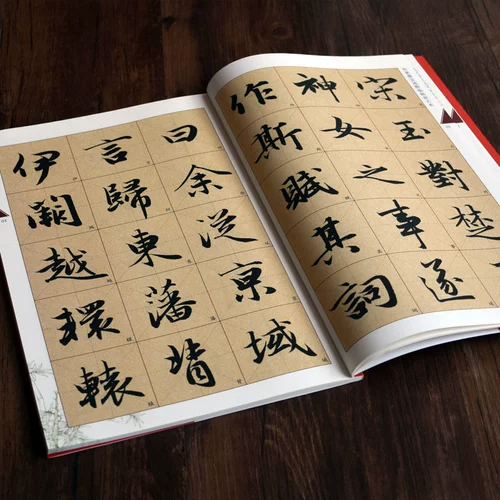 宋玉對楚
神女之事遂
作斯賦其詞
曰余從京域
言歸東藩背
伊闕越環轅